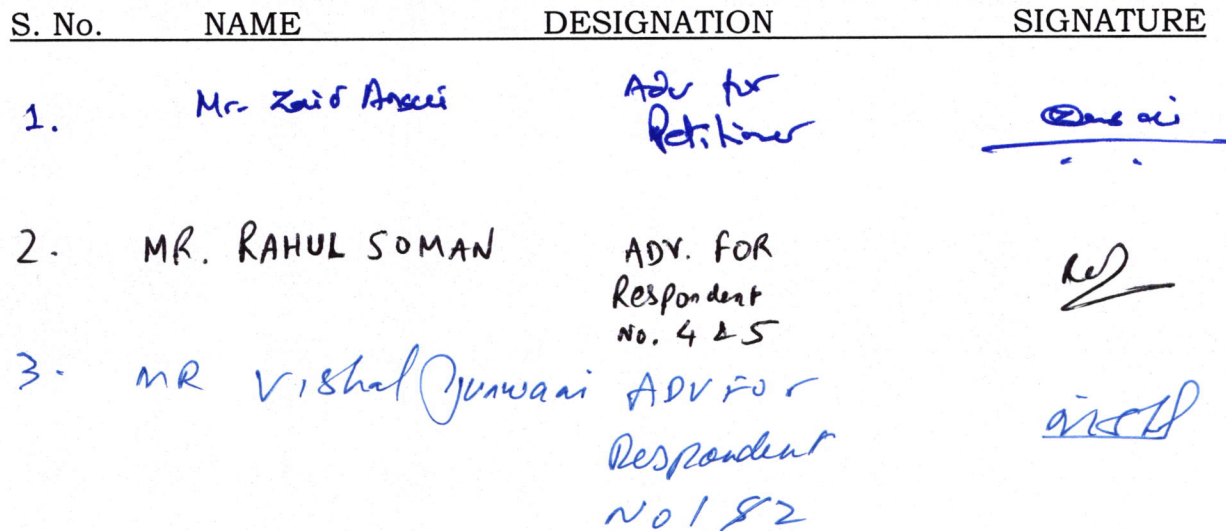 S. No. NAME DESIGNATION SIGNATURE
1. Mr. Zaid Ansari Adv for
Petitioner
2. MR. RAHUL SOMAN ADV. FOR
Respondent
No. 4 & 5
3. MR Vishal ADV FOr
Respondent
No 1 & 2